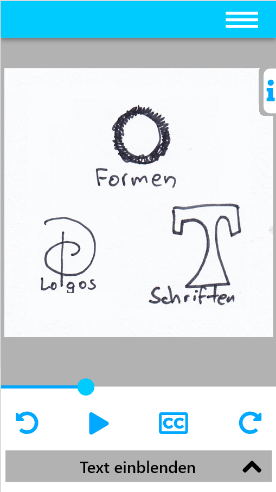 Formen
Logos
Schriften
CC
Text einblenden